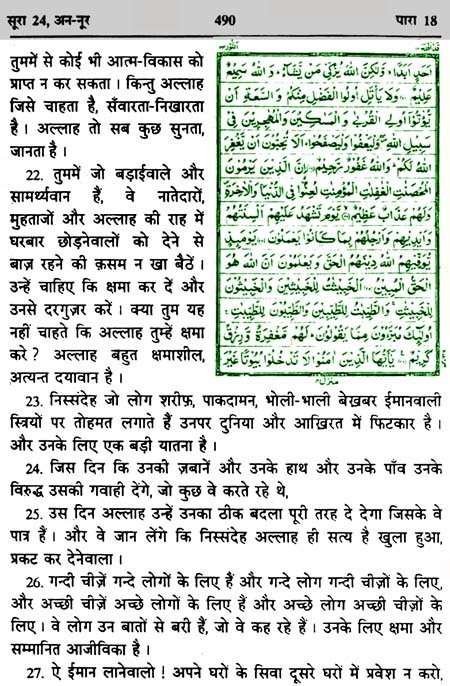 सूरा 24, अन-नूर 490 पारा 18
तुममें से कोई भी आत्म-विकास को
प्राप्त न कर सकता । किन्तु अल्लाह
जिसे चाहता है, सँवारता-निखारता
है । अल्लाह तो सब कुछ सुनता,
जानता है ।
22. तुममें जो बड़ाईवाले और
सामर्थ्यवान हैं, वे नातेदारों,
मुहताजों और अल्लाह की राह में
घरबार छोड़नेवालों को देने से
बाज़ रहने की क़सम न खा बैठें ।
उन्हें चाहिए कि क्षमा कर दें और
उनसे दरगुज़र करें । क्या तुम यह
नहीं चाहते कि अल्लाह तुम्हें क्षमा
करे ? अल्लाह बहुत क्षमाशील,
अत्यन्त दयावान है ।
اَحَدٍ اَبَدًا وَّلٰكِنَّ اللّٰهَ يُزَكِّيْ مَنْ يَّشَآءُ وَاللّٰهُ سَمِيْعٌ
عَلِيْمٌ وَلَا يَاْتَلِ اُولُوا الْفَضْلِ مِنْكُمْ وَالسَّعَةِ اَنْ
يُّؤْتُوْٓا اُولِي الْقُرْبٰى وَالْمَسٰكِيْنَ وَالْمُهٰجِرِيْنَ فِيْ
سَبِيْلِ اللّٰهِ وَلْيَعْفُوْا وَلْيَصْفَحُوْا اَلَا تُحِبُّوْنَ اَنْ يَّغْفِرَ
اللّٰهُ لَكُمْ وَاللّٰهُ غَفُوْرٌ رَّحِيْمٌ اِنَّ الَّذِيْنَ يَرْمُوْنَ
الْمُحْصَنٰتِ الْغٰفِلٰتِ الْمُؤْمِنٰتِ لُعِنُوْا فِي الدُّنْيَا وَالْاٰخِرَةِ
وَلَهُمْ عَذَابٌ عَظِيْمٌ يَّوْمَ تَشْهَدُ عَلَيْهِمْ اَلْسِنَتُهُمْ
وَاَيْدِيْهِمْ وَاَرْجُلُهُمْ بِمَا كَانُوْا يَعْمَلُوْنَ يَوْمَئِذٍ
يُّوَفِّيْهِمُ اللّٰهُ دِيْنَهُمُ الْحَقَّ وَيَعْلَمُوْنَ اَنَّ اللّٰهَ هُوَ
الْحَقُّ الْمُبِيْنُ اَلْخَبِيْثٰتُ لِلْخَبِيْثِيْنَ وَالْخَبِيْثُوْنَ
لِلْخَبِيْثٰتِ وَالطَّيِّبٰتُ لِلطَّيِّبِيْنَ وَالطَّيِّبُوْنَ لِلطَّيِّبٰتِ
اُولٰٓئِكَ مُبَرَّءُوْنَ مِمَّا يَقُوْلُوْنَ لَهُمْ مَّغْفِرَةٌ وَّرِزْقٌ
كَرِيْمٌ يٰٓاَيُّهَا الَّذِيْنَ اٰمَنُوْا لَا تَدْخُلُوْا بُيُوْتًا غَيْرَ
23. निस्संदेह जो लोग शरीफ़, पाकदामन, भोली-भाली बेखबर ईमानवाली
स्त्रियों पर तोहमत लगाते हैं उनपर दुनिया और आख़िरत में फिटकार है ।
और उनके लिए एक बड़ी यातना है ।
24. जिस दिन कि उनकी ज़बानें और उनके हाथ और उनके पाँव उनके
विरुद्ध उसकी गवाही देंगे, जो कुछ वे करते रहे थे,
25. उस दिन अल्लाह उन्हें उनका ठीक बदला पूरी तरह दे देगा जिसके वे
पात्र हैं । और वे जान लेंगे कि निस्संदेह अल्लाह ही सत्य है खुला हुआ,
प्रकट कर देनेवाला ।
26. गन्दी चीज़ें गन्दे लोगों के लिए हैं और गन्दे लोग गन्दी चीज़ों के लिए,
और अच्छी चीज़ें अच्छे लोगों के लिए हैं और अच्छे लोग अच्छी चीज़ों के
लिए । वे लोग उन बातों से बरी हैं, जो वे कह रहे हैं । उनके लिए क्षमा और
सम्मानित आजीविका है ।
27. ऐ ईमान लानेवालो ! अपने घरों के सिवा दूसरे घरों में प्रवेश न करो,